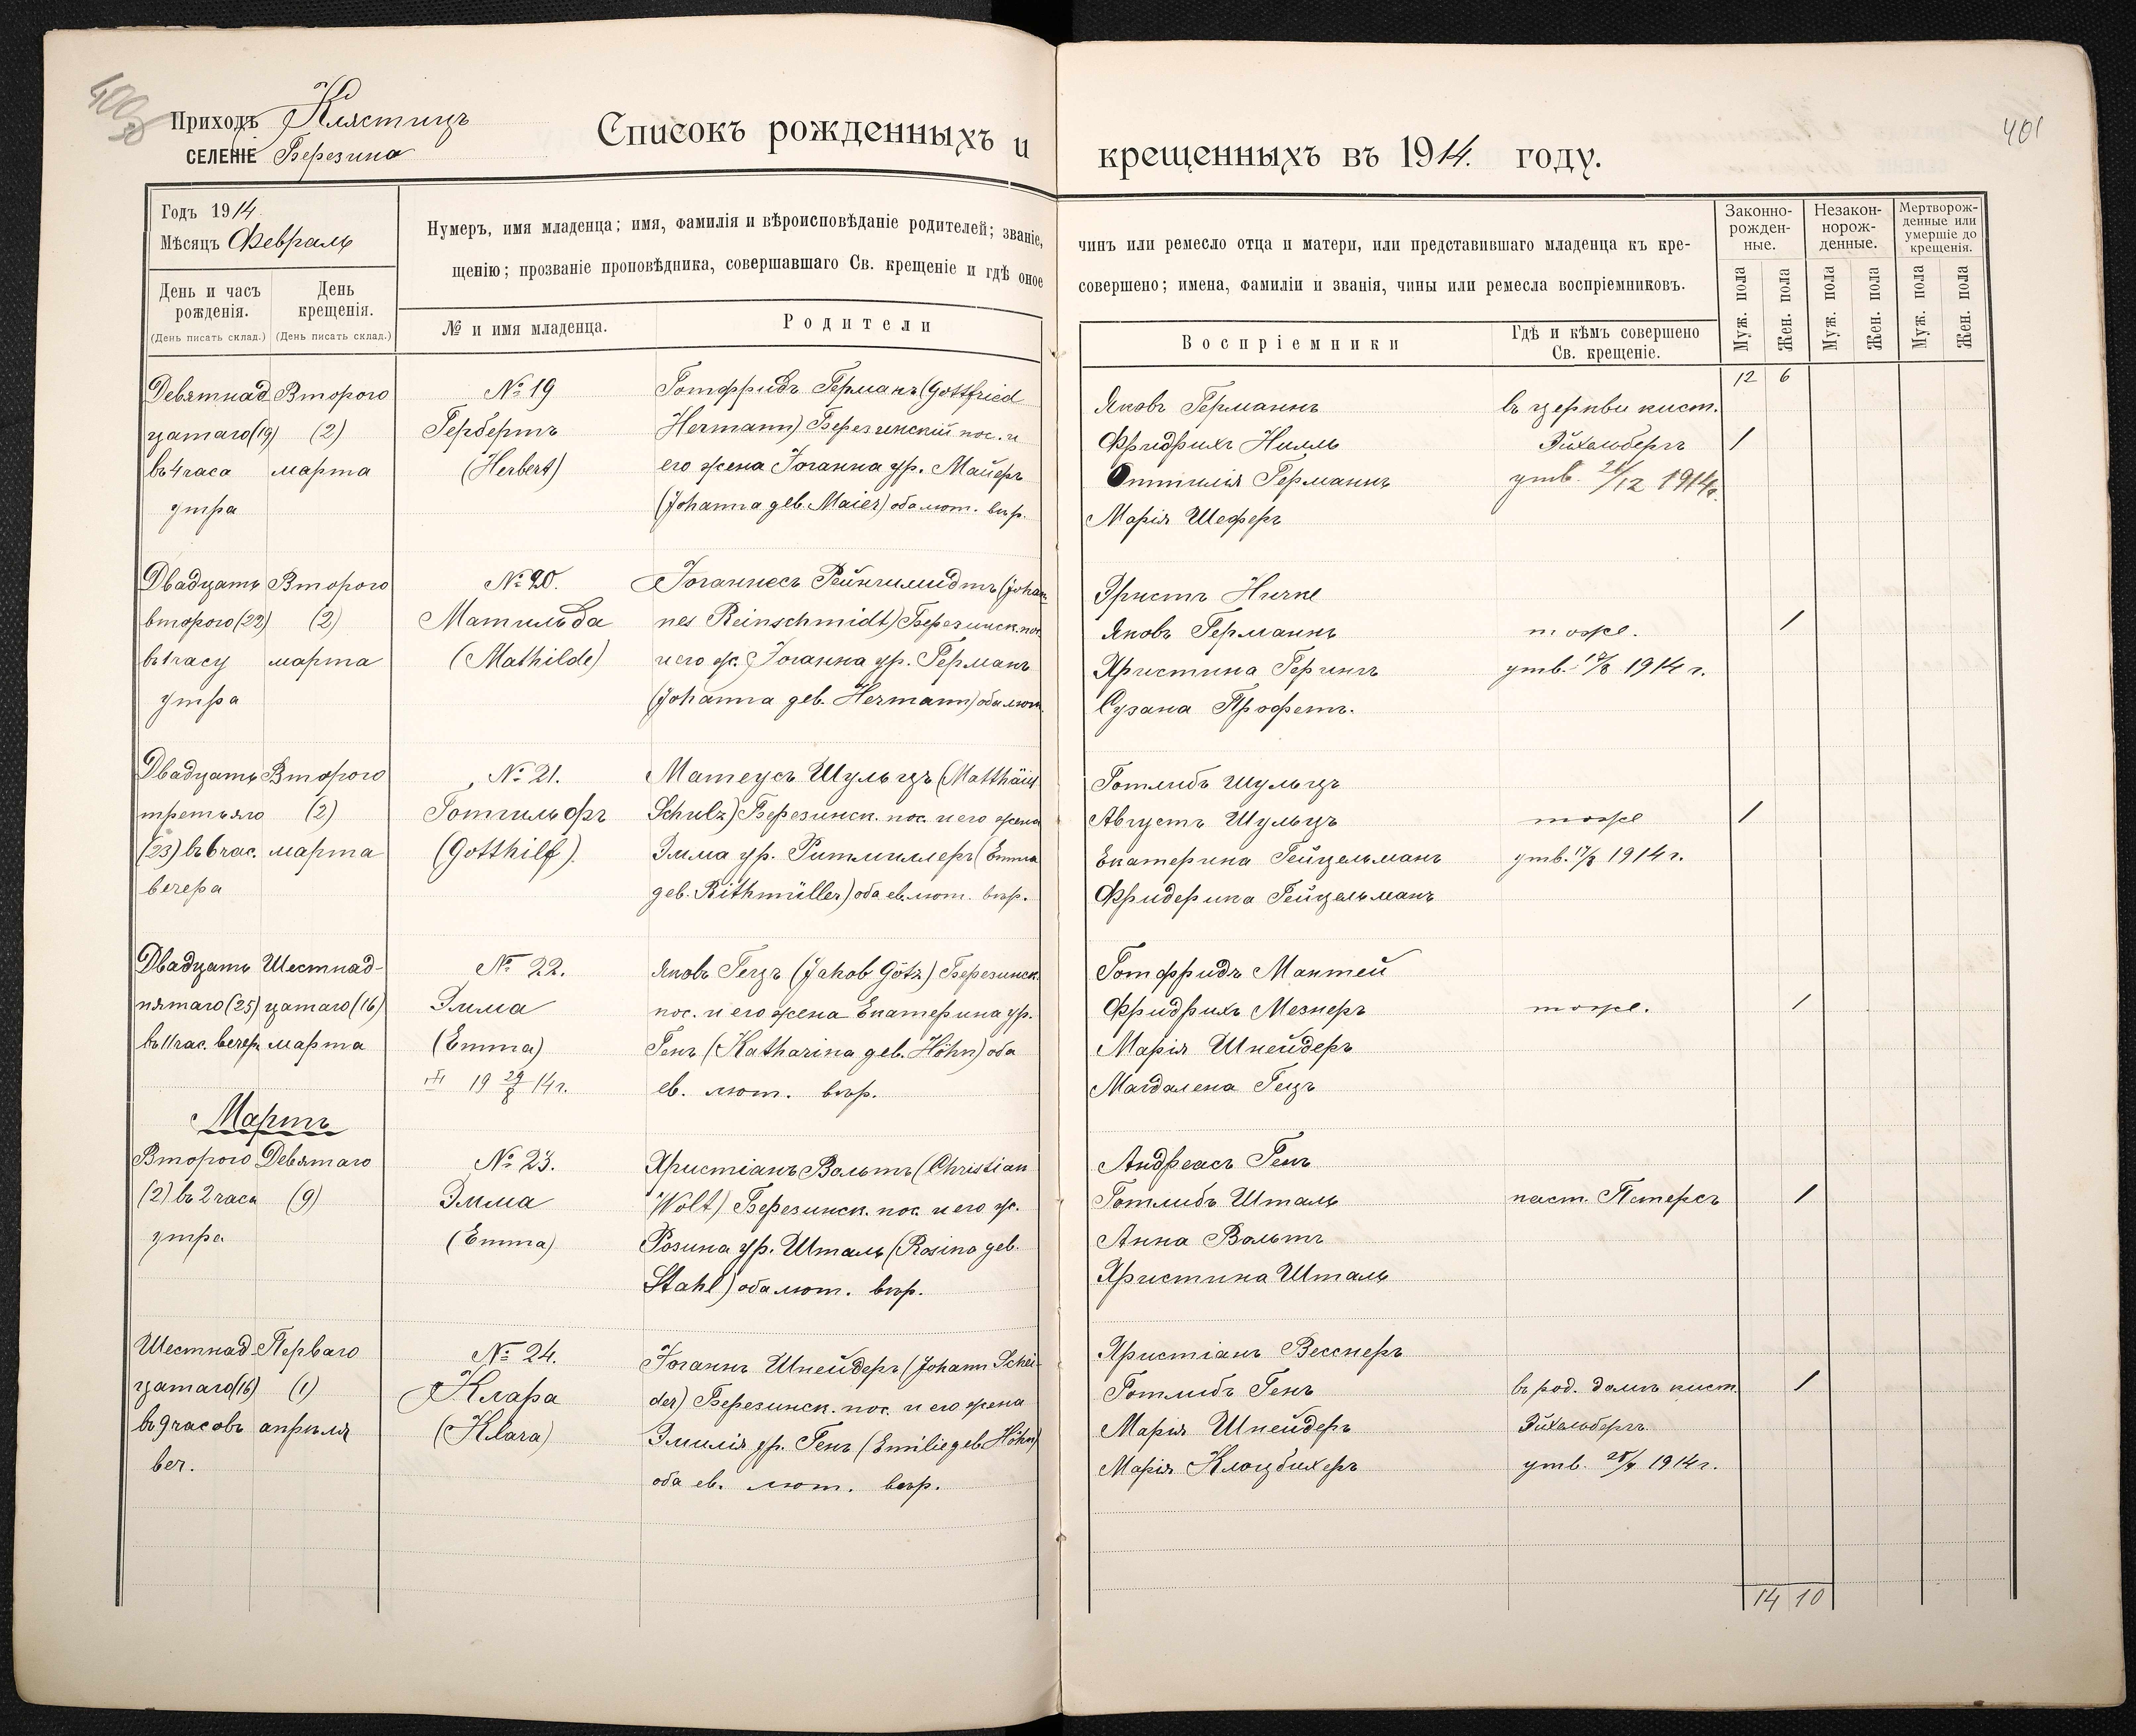 400
Приходъ Клястицъ
СЕЛЕНІЕ Березина
Списокъ рожденныхъ и
крещенныхъ въ 1914. году.
401
Годъ 1914
Мѣсяцъ Февраль
День и часъ рожденія.
(День писать склад.)
День крещенія.
(День писать склад.)
Нумеръ, имя младенца; имя, фамилія и вѣроисповѣданіе родителей; званіе,
щенію; прозваніе проповѣдника, совершавшаго Св. крещеніе и гдѣ оное
№ и имя младенца.
Родители
чинъ или ремесло отца и матери, или представившаго младенца къ кре-
совершено; имена, фамиліи и званія, чины или ремесла воспріемниковъ.
Воспріемники
Гдѣ и кѣмъ совершено
Св. крещеніе.
Законно-
рожден-
ные.
Незакон-
норож-
денные.
Мертворож-
денные или
умершіе до
крещенія.
Муж. пола
Жен. пола
Муж. пола
Жен. пола
Муж. пола
Жен. пола
12 6
Девятнад
цатаго (19)
въ 4 часа
утра
Второго
(2)
марта
№ 19
Гербертъ
(Herbert)
Готфридъ Германъ (Gottfried
Hermann) Березинскій пос. и
его жена Іоганна ур. Майеръ
(Johanna geb. Maier) оба лют. вѣр.
Яковъ Германнъ
Фридрихъ Нилль
Оттилія Германнъ
Марія Шеферъ
въ церкви кист.
Эйхельбергъ
утв. /12 1914г.
1
Двадцать
второго (22)
въ 1 часу
утра
Второго
(2)
марта
№ 20.
Матильда
(Mathilde)
Іоганнесъ Рейншмидтъ (Johan
nes Reinschmidt) Березинск. пос
и его ж. Іоганна ур. Германъ
(Johanna geb. Hermann) оба лют.
Эрнстъ
Яковъ Германнъ
Христина Герингъ
Сузана Профетъ.
тоже.
утв. 1914 г.
1
Двадцать
третьяго
(23) въ 6 час.
вечера
Второго
(2)
марта
№ 21.
Готтильфъ
(Gotthilf).
Матеусъ Шульцъ (Matthäus
Schulz) Березинск. пос. и его жена
Эмма ур. Ритмиллеръ (Emma
geb. Rithmüller) оба ев. лют. вѣр.
Готлибъ Шульцъ
Августъ Шульцъ
Екатерина Гейцельманъ
Фридерика Гейцельманъ
тоже
утв. 17/8 1914 г.
1
Двадцать
пятаго (25)
въ 11 час. вечер.
Шестнад-
цатаго (16)
марта
№ 22.
Эмма
(Emma)
19 29/8 14 г.
Яковъ Гецъ (Jakob Götz) Березинск.
пос. и его жена Екатерина ур.
Генъ (Katharina geb. Höhn) оба
ев. лют. вѣр.
Готфридъ Мантей
Фридрихъ Мезнеръ
Марія Шнейдеръ
Магдалена Гецъ
тоже.
1
Мартъ
Второго
(2) въ 2 часа
утра
Девятаго
(9)
№ 23.
Эмма
(Emma)
Христіанъ Вольтъ (Christian
Wolt) Березинск. пос. и его ж.
Розина ур. Шталь (Rosina geb.
Stahl) оба лют. вѣр.
Андреасъ Генъ
Готлибъ Шталь
Анна Вольтъ
Христина Шталь
паст. Петерсъ
1
Шестнад
цатаго (16)
въ 9 часовъ
веч.
Перваго
(1)
апрѣля
№ 24.
Клара
(Klara)
Іоганнъ Шнейдеръ (Johann Schei
der) Березинск. пос. и его жена
Эмилія ур. Генъ (Emilie geb. Höhn)
оба ев. лют. вѣр.
Христіанъ Весснеръ
Готлибъ Генъ
Марія Шнейдеръ
Марія Клоцбихеръ
въ род. домѣ кист.
Эйхельбергъ
утв. 1914 г.
1
14 10